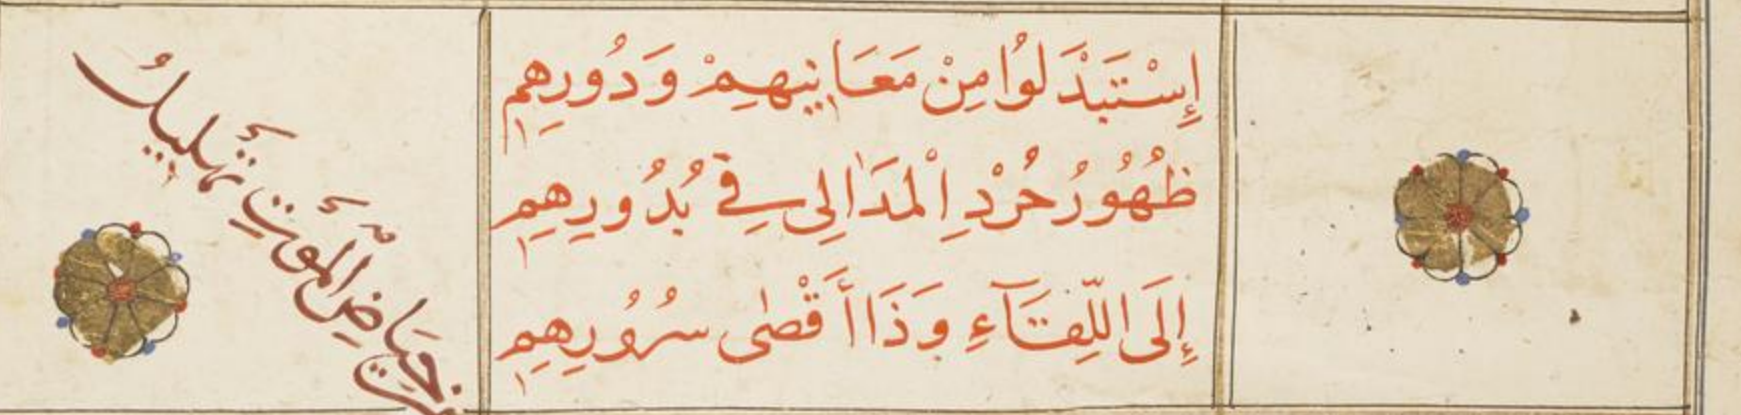 إِسْتَبْدَلُوا مِنْ مَعَانِيهِمْ وَدُورِهِمِ
ظُهُورُ جُرْدِ الْمَذَاكِي فِي بُدُورِهِمِ
إِلَى اللِّقَآءِ وَذَا أَقْصٰى سُرُورِهِمِ
حِيَاضِ الْمَوْتِ تَهْلِيلُ